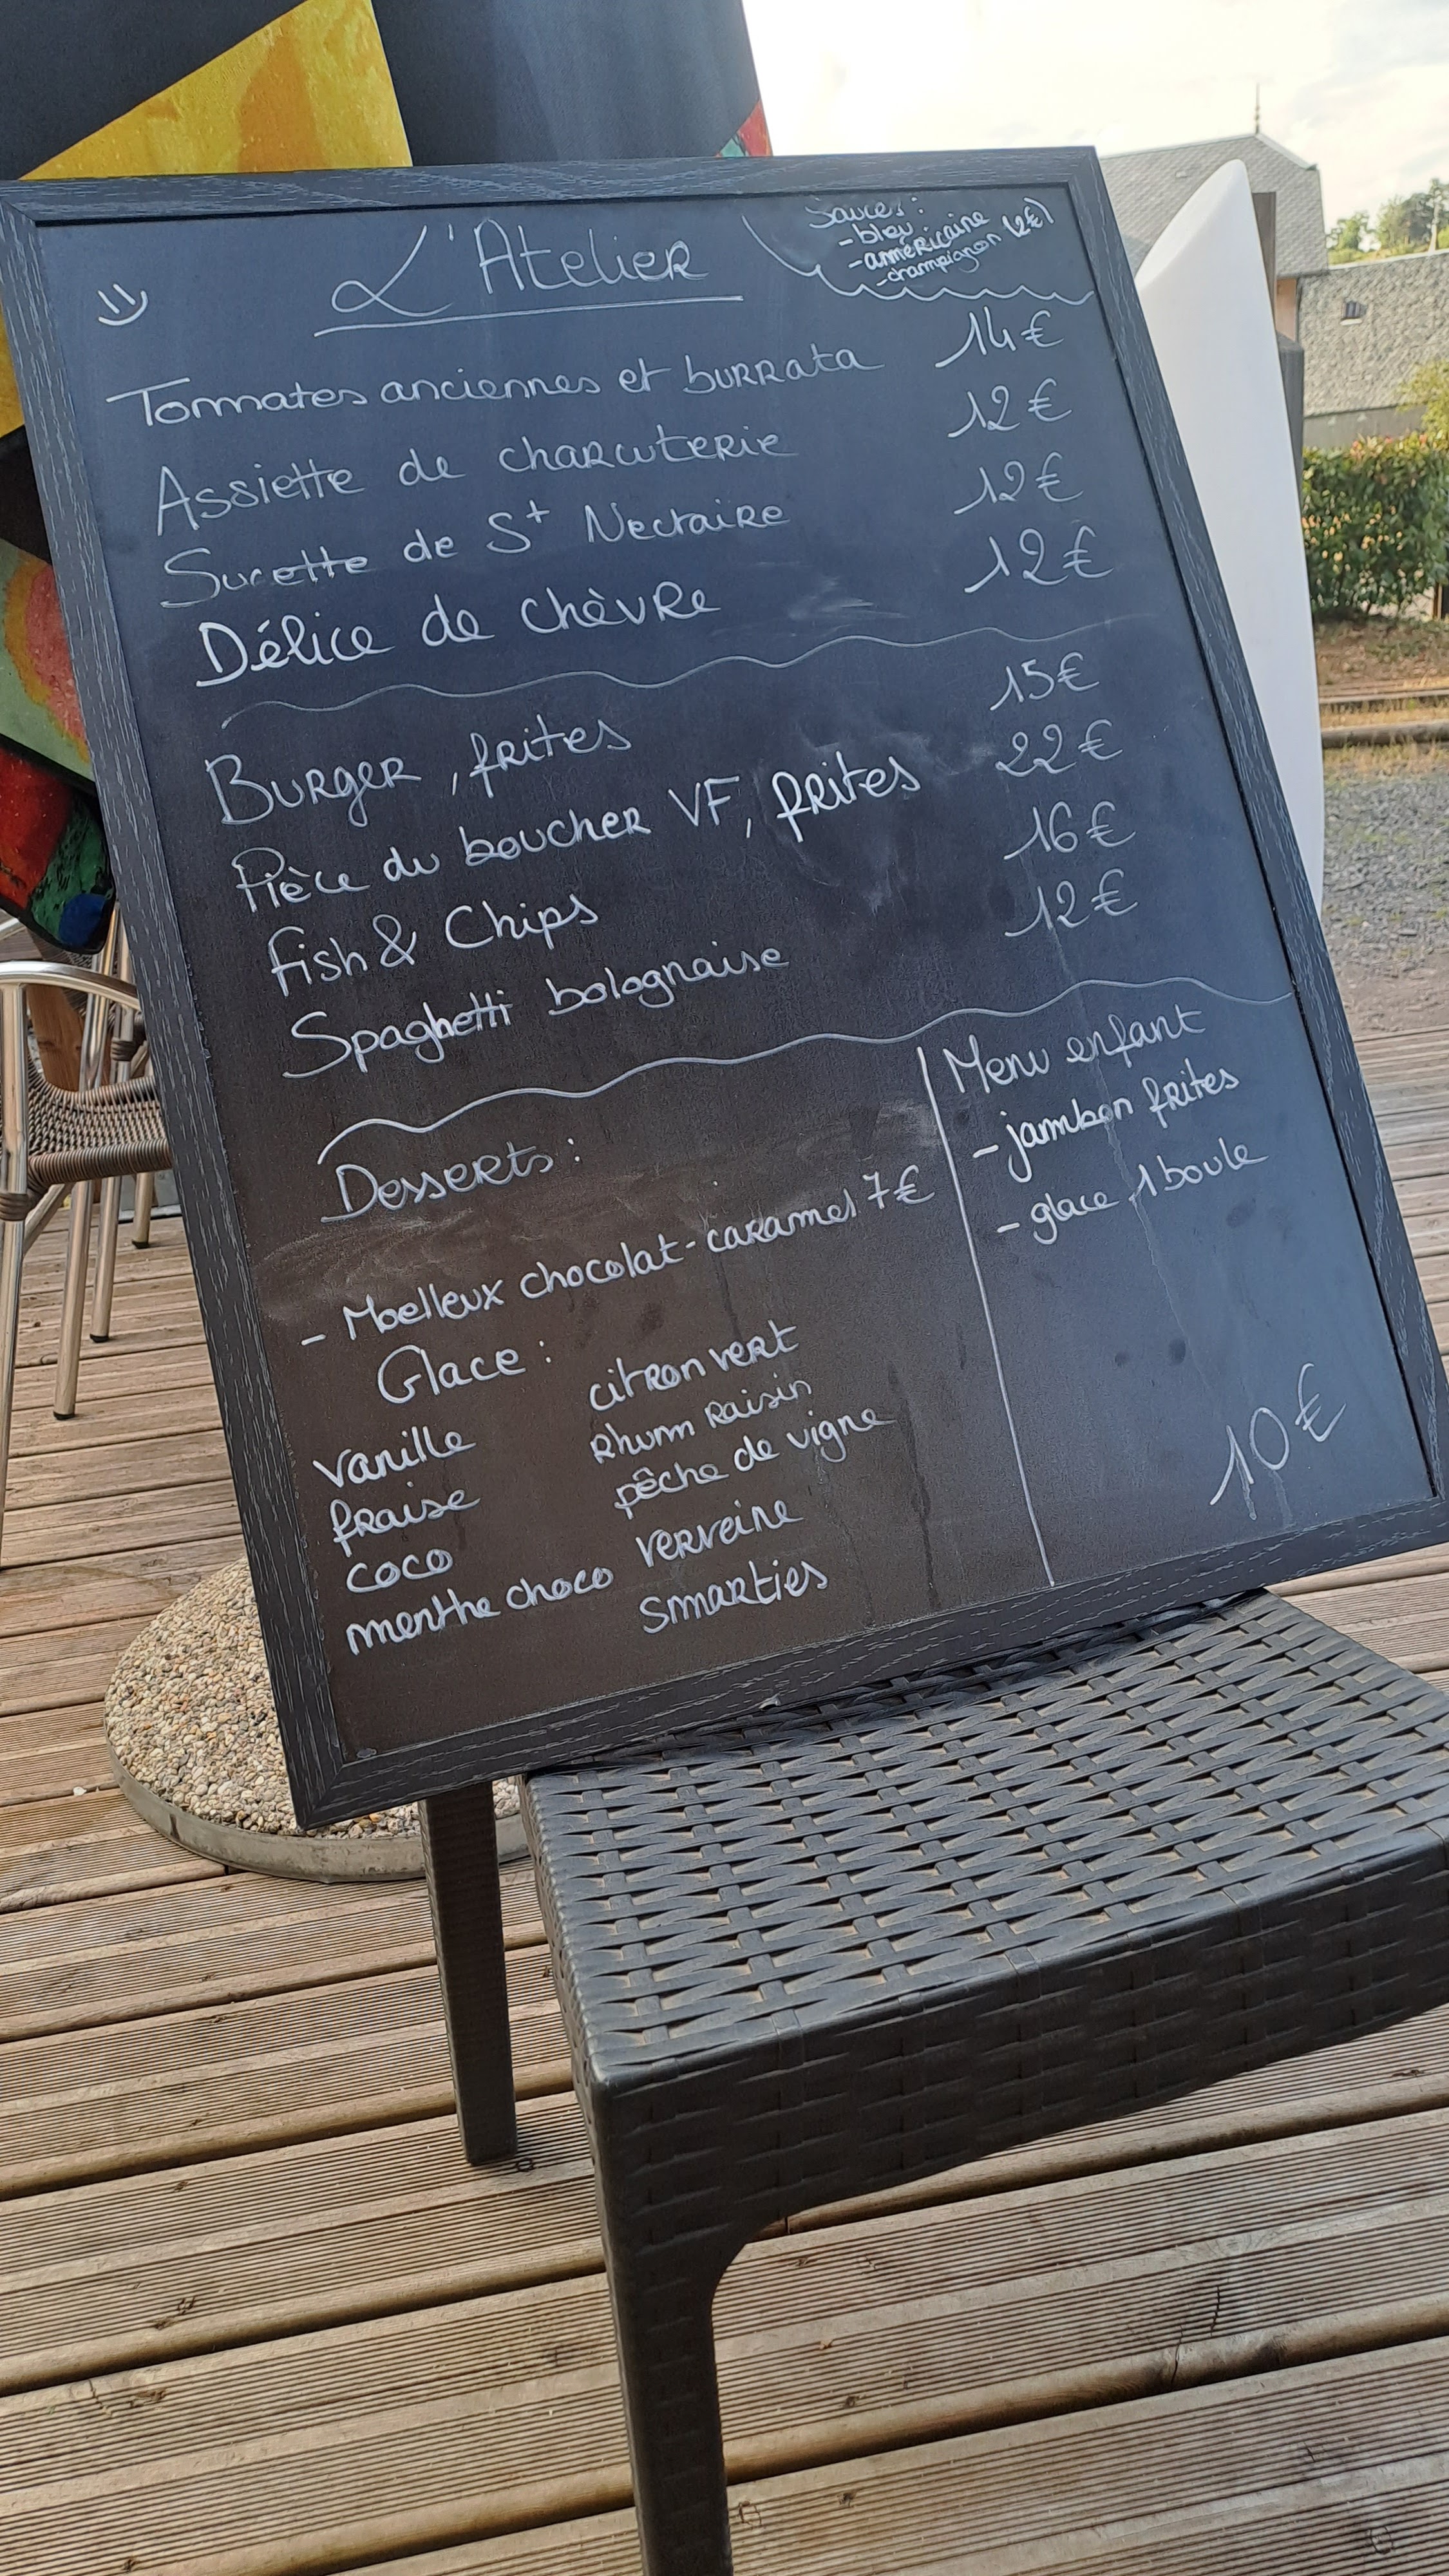 L'Atelier
Sauces :
- bleu
- américaine (2€)
- champignon
Tomates anciennes et burrata 14€
Assiette de charcuterie 12€
Sucette de St Nectaire 12€
Délice de chèvre 12€
Burger, frites 15€
Pièce du boucher VF, frites 22€
Fish & Chips 16€
Spaghetti bolognaise 12€
Desserts :
- Moelleux chocolat-caramel 7€
Glace :
vanille
fraise
coco
menthe choco
citron vert
Rhum Raisin
pêche de vigne
verveine
smarties
Menu enfant
- jambon frites
- glace 1 boule
10€